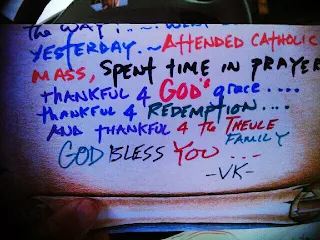 THE WAY ! .. ~ WENT
YESTERDAY. ~ ATTENDED CATHOLIC
MASS, SPENT TIME IN PRAYER
THANKFUL 4 GOD'S grace ....
THANKFUL 4 REDEMPTION ....
AND THANKFUL 4 The THEULE
FAMILY
GOD BLESS YOU ...
-VK-